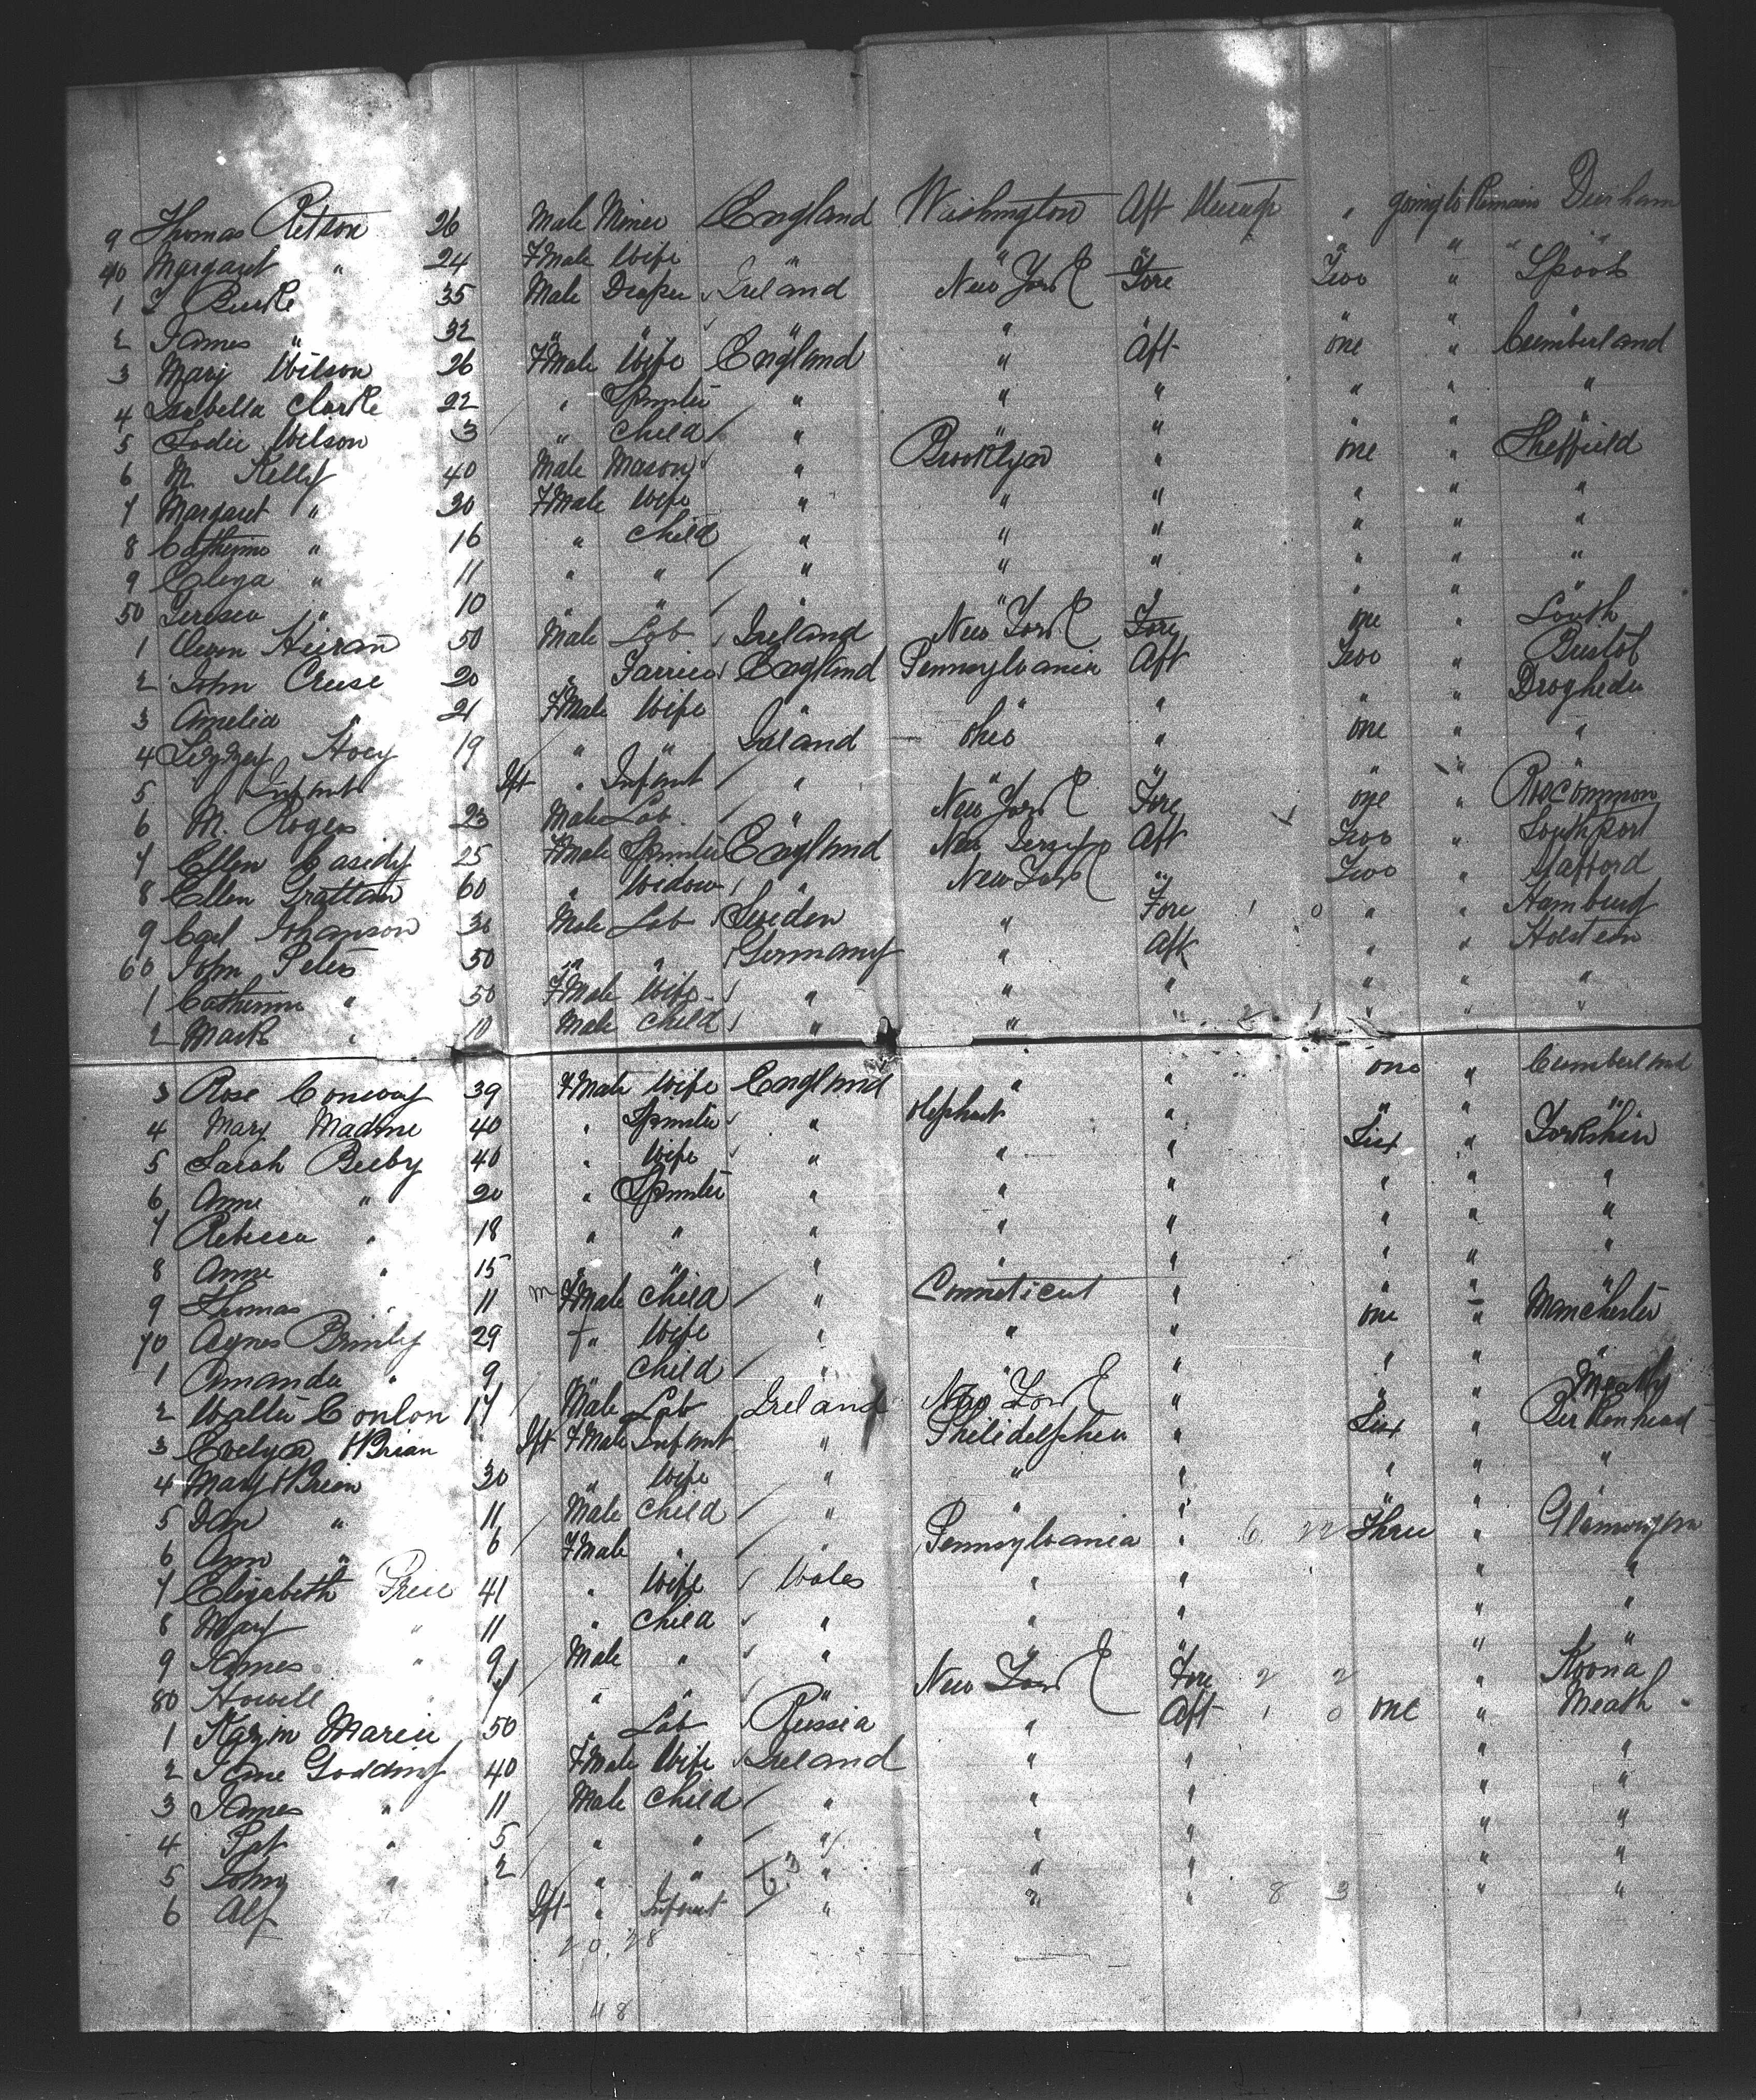 9 Thomas Ritson 26 Male Miner England Washington Aft " going to Remain Durham
40 Margaret " 24 FMale Wife " " " " " " "
1 J Burke 35 Male Draper Ireland New York Fore Two "
2 James " 32 " " " " " " " "
3 Mary Wilson 26 FMale Wife England " Aft one " Cumberland
4 Isabella Clarke 22 " Spinster " " " " " "
5 Sadie Wilson 3 " Child " " " " " "
6 M. Kelly 40 Male Mason " Brooklyn " one " Sheffield
7 Margaret " 30 FMale Wife " " " " " "
8 Catherine " 16 " Child " " " " " "
9 Eliza " 11 " " " " " " " "
50 Teresa " 10 " " " " " " " "
1 Owen Kieran 50 Male Lab Ireland New York Fore one " Louth
2 John Cruse 20 " Farrier England Pennsylvania Aft Two " Bristol
3 Amelia " 21 FMale Wife " " " " " Drogheda
4 Lizzey Hoey 19 " " Ireland Ohio " one " "
5 " Infant Ift " Infant " " " " "
6 M. Rogers 23 Male Lab " New York Fore one " Roscommon
7 Ellen Casidy 25 FMale Spinster England New Jersey Aft Two " Southport
8 Ellen Grattan 60 " Widow " New York " Two " Stafford
9 Carl Johanson 30 Male Lab Sweden " Fore 1 0 " " Hamburg
60 John Peters 50 " " Germany " Aft " " Holstein
1 Catherine " 50 FMale Wife " " " " " "
2 Mark " 10 Male Child " " " 2 1 " " "
3 Rose Conway 39 FMale Wife England " " one " Cumberland
4 Mary Madine 40 " Spinster " " " " "
5 Sarah Beeby 40 " Wife " " " Six " Yorkshire
6 Anne " 20 " Spinster " " " " " "
7 Rebecca " 18 " " " " " " " "
8 Anne " 15 " " " " " " " "
9 Thomas " 11 m FMale Child " Conneticut " " " "
70 Agnes Brimly 29 f " Wife " " " one " Manchester
1 Amanda " 9 " Child " " " " " "
2 Walter Conlon 17 Male Lab Ireland New York " " " Meath
3 Evelyn OBrian Ift FMale Infant " Philidelphia " Six " Birkenhead
4 Mary OBrien 30 " Wife " " " " " "
5 Dan " 11 Male Child " " " " "
6 Ann " 6 FMale " " Pennsylvania " 6 22 Three " Glamorgan
7 Elizabeth Price 41 " Wife Wales " " " "
8 Mary " 11 " Child " " " " "
9 James " 9 Male " " " " " "
80 Howell " 7 " " " New York Fore 2 2 " Koona
1 Kazin Marcii 50 " Lab Russia " Aft 1 0 one " Meath
2 Jane Godding 40 FMale Wife Ireland " " " "
3 James " 11 Male Child " " " " "
4 Pat " 5 " " " " " " "
5 John " 2 " " " " " " "
6 Alf Ift " Infant " " " 8 3 " "
20. 28
48